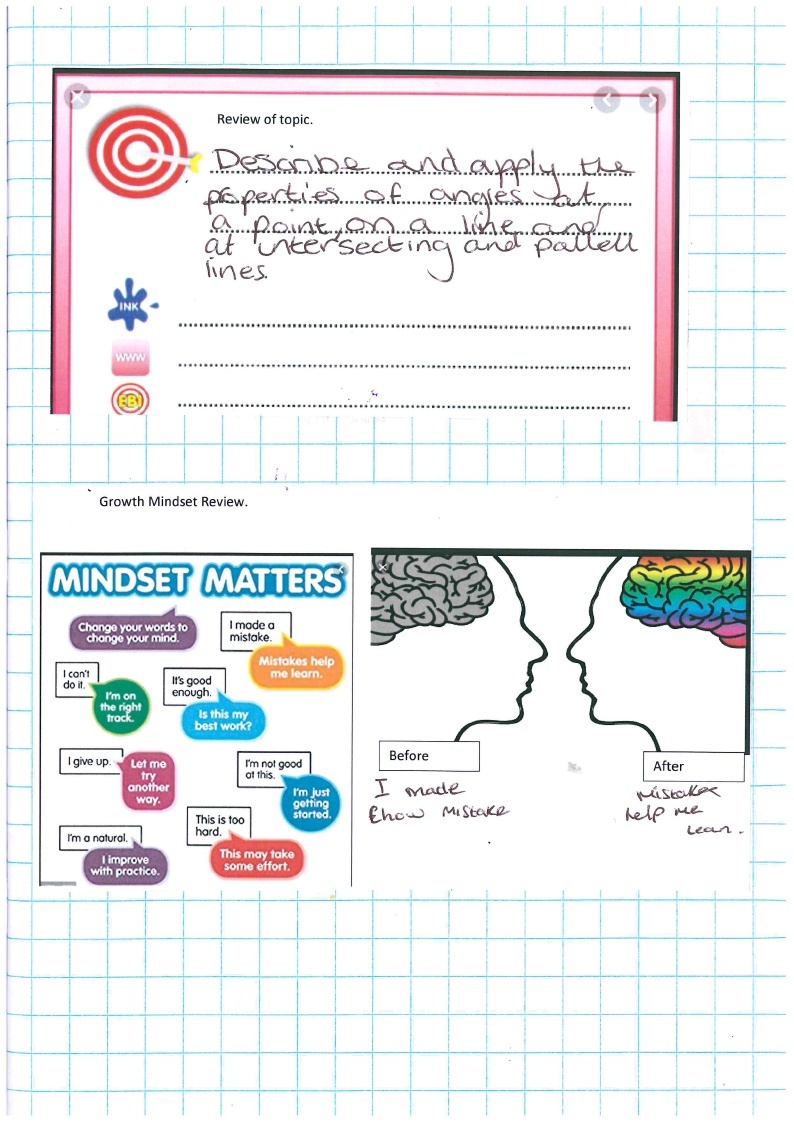 Review of topic.
Describe and apply the
properties of angles at
a point, on a line and
at intersecting and pallell
lines.
INK
WWW
EBI
Growth Mindset Review.
MINDSET MATTERS
Change your words to
change your mind.
I made a
mistake.
Mistakes help
me learn.
I can't
do it.
I'm on
the right
track.
It's good
enough.
Is this my
best work?
I give up.
Let me
try
another
way.
I'm not good
at this.
I'm just
getting
started.
This is too
hard.
This may take
some effort.
I'm a natural.
I improve
with practice.
Before
I made
mistake
After
mistakes
help me
lean.